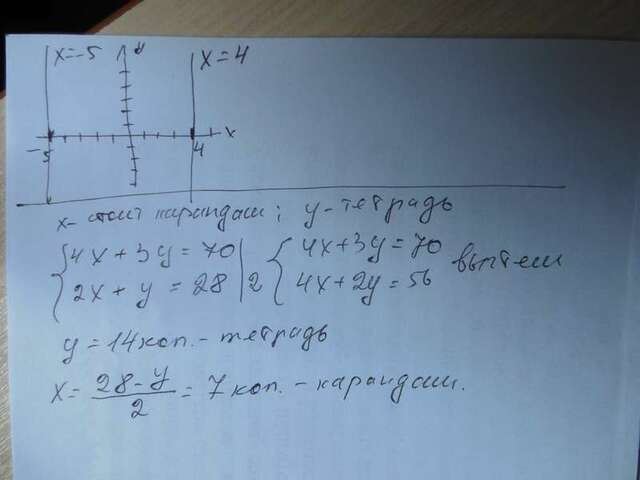 x=-5 y x=4
-5 4 x
x- стоит карандаш; y-тетрадь
4x+3y=70 | 4x+3y=70
2x+y=28 | 2 4x+2y=56 вычтем
y=14 коп.-тетрадь
x= 28-y / 2 = 7 коп. - карандаш.